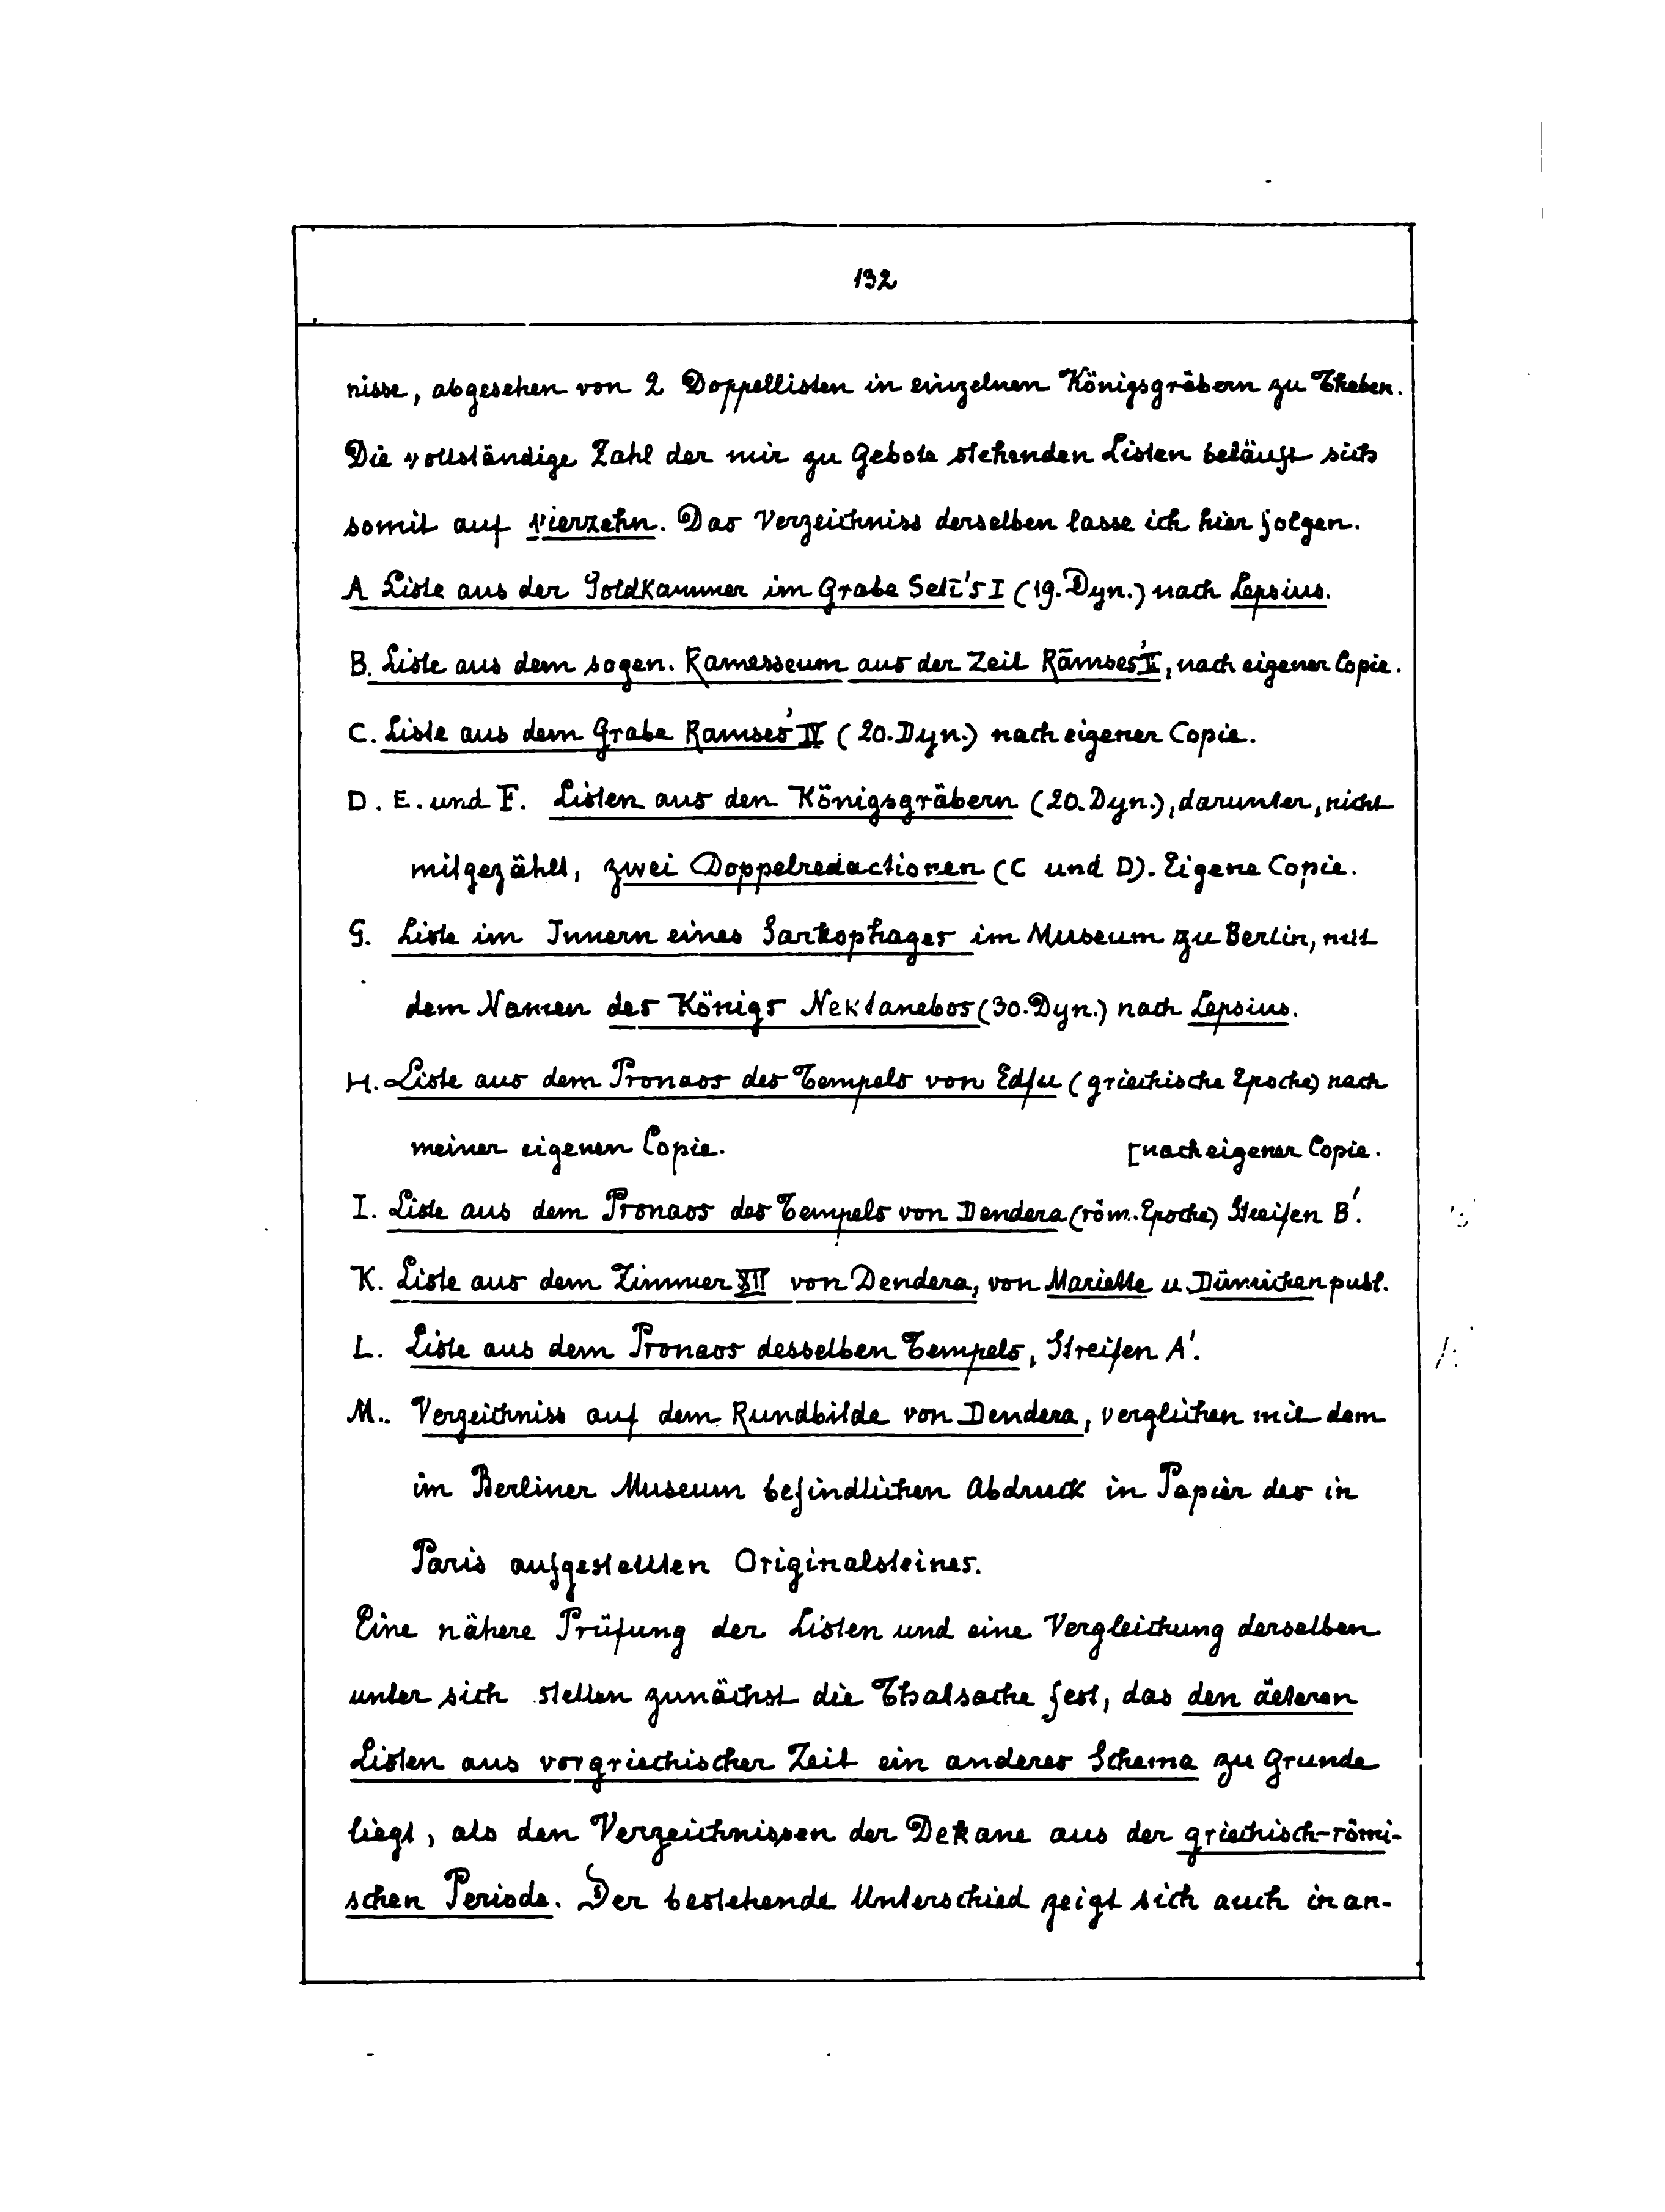 132
nisse, abgesehen von 2 Doppellisten in einzelnen Königsgräbern zu Theben.
Die vollständige Zahl der mir zu Gebote stehenden Listen beläuft sich
somit auf vierzehn. Das Verzeichniss derselben lasse ich hier folgen.
A Liste aus der Goldkammer im Grabe Setī's I (19. Dyn.) nach Lepsius.
B. Liste aus dem sogen. Ramesseum aus der Zeit Rāmses' II, nach eigener Copie.
C. Liste aus dem Grabe Ramses' IV (20. Dyn.) nach eigener Copie.
D. E. und F. Listen aus den Königsgräbern (20. Dyn.), darunter, nicht
mitgezählt, zwei Doppelredactionen (C und D). Eigene Copie.
G. Liste im Innern eines Sarkophages im Museum zu Berlin, mit
dem Namen des Königs Nektanebos (30. Dyn.) nach Lepsius.
H. Liste aus dem Pronaos des Tempels von Edfu (griechische Epoche) nach
meiner eigenen Copie. [nach eigener Copie.
I. Liste aus dem Pronaos des Tempels von Dendera (röm. Epoche) Streifen B'.
K. Liste aus dem Zimmer XII von Dendera, von Mariette u. Dümichen publ.
L. Liste aus dem Pronaos desselben Tempels, Streifen A'.
M.. Verzeichniss auf dem Rundbilde von Dendera, verglichen mit dem
im Berliner Museum befindlichen Abdruck in Papier des in
Paris aufgestellten Originalsteines.
Eine nähere Prüfung der Listen und eine Vergleichung derselben
unter sich stellen zunächst die Thatsache fest, das den älteren
Listen aus vorgriechischer Zeit ein anderes Schema zu Grunde
liegt, als den Verzeichnissen der Dekane aus der griechisch-römi-
schen Periode. Der bestehende Unterschied zeigt sich auch in an-